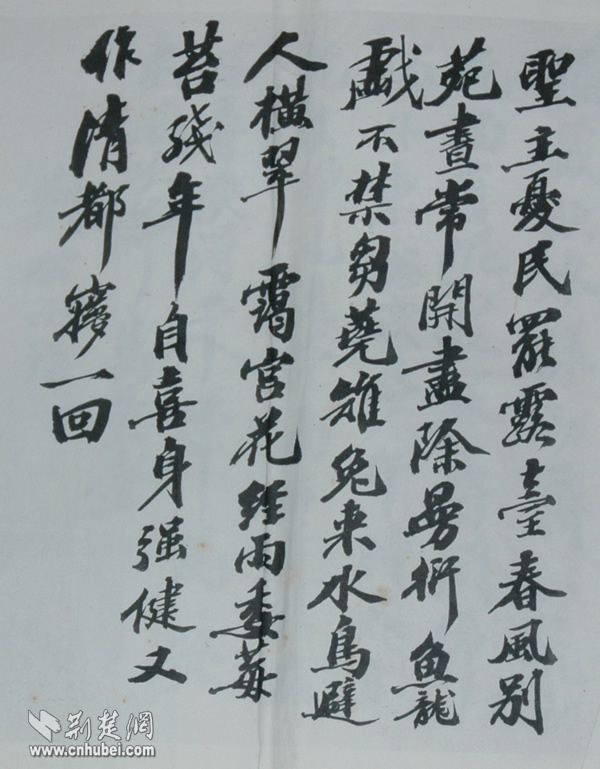 聖主憂民罷露臺春風別
苑晝常開盡除曼衍魚龍
戲不禁芻蕘雉兔来水鳥避
人横翠靄宫花經雨委莓
苔殘年自喜身强健又
作清都夢一回
荆楚網
www.cnhubei.com